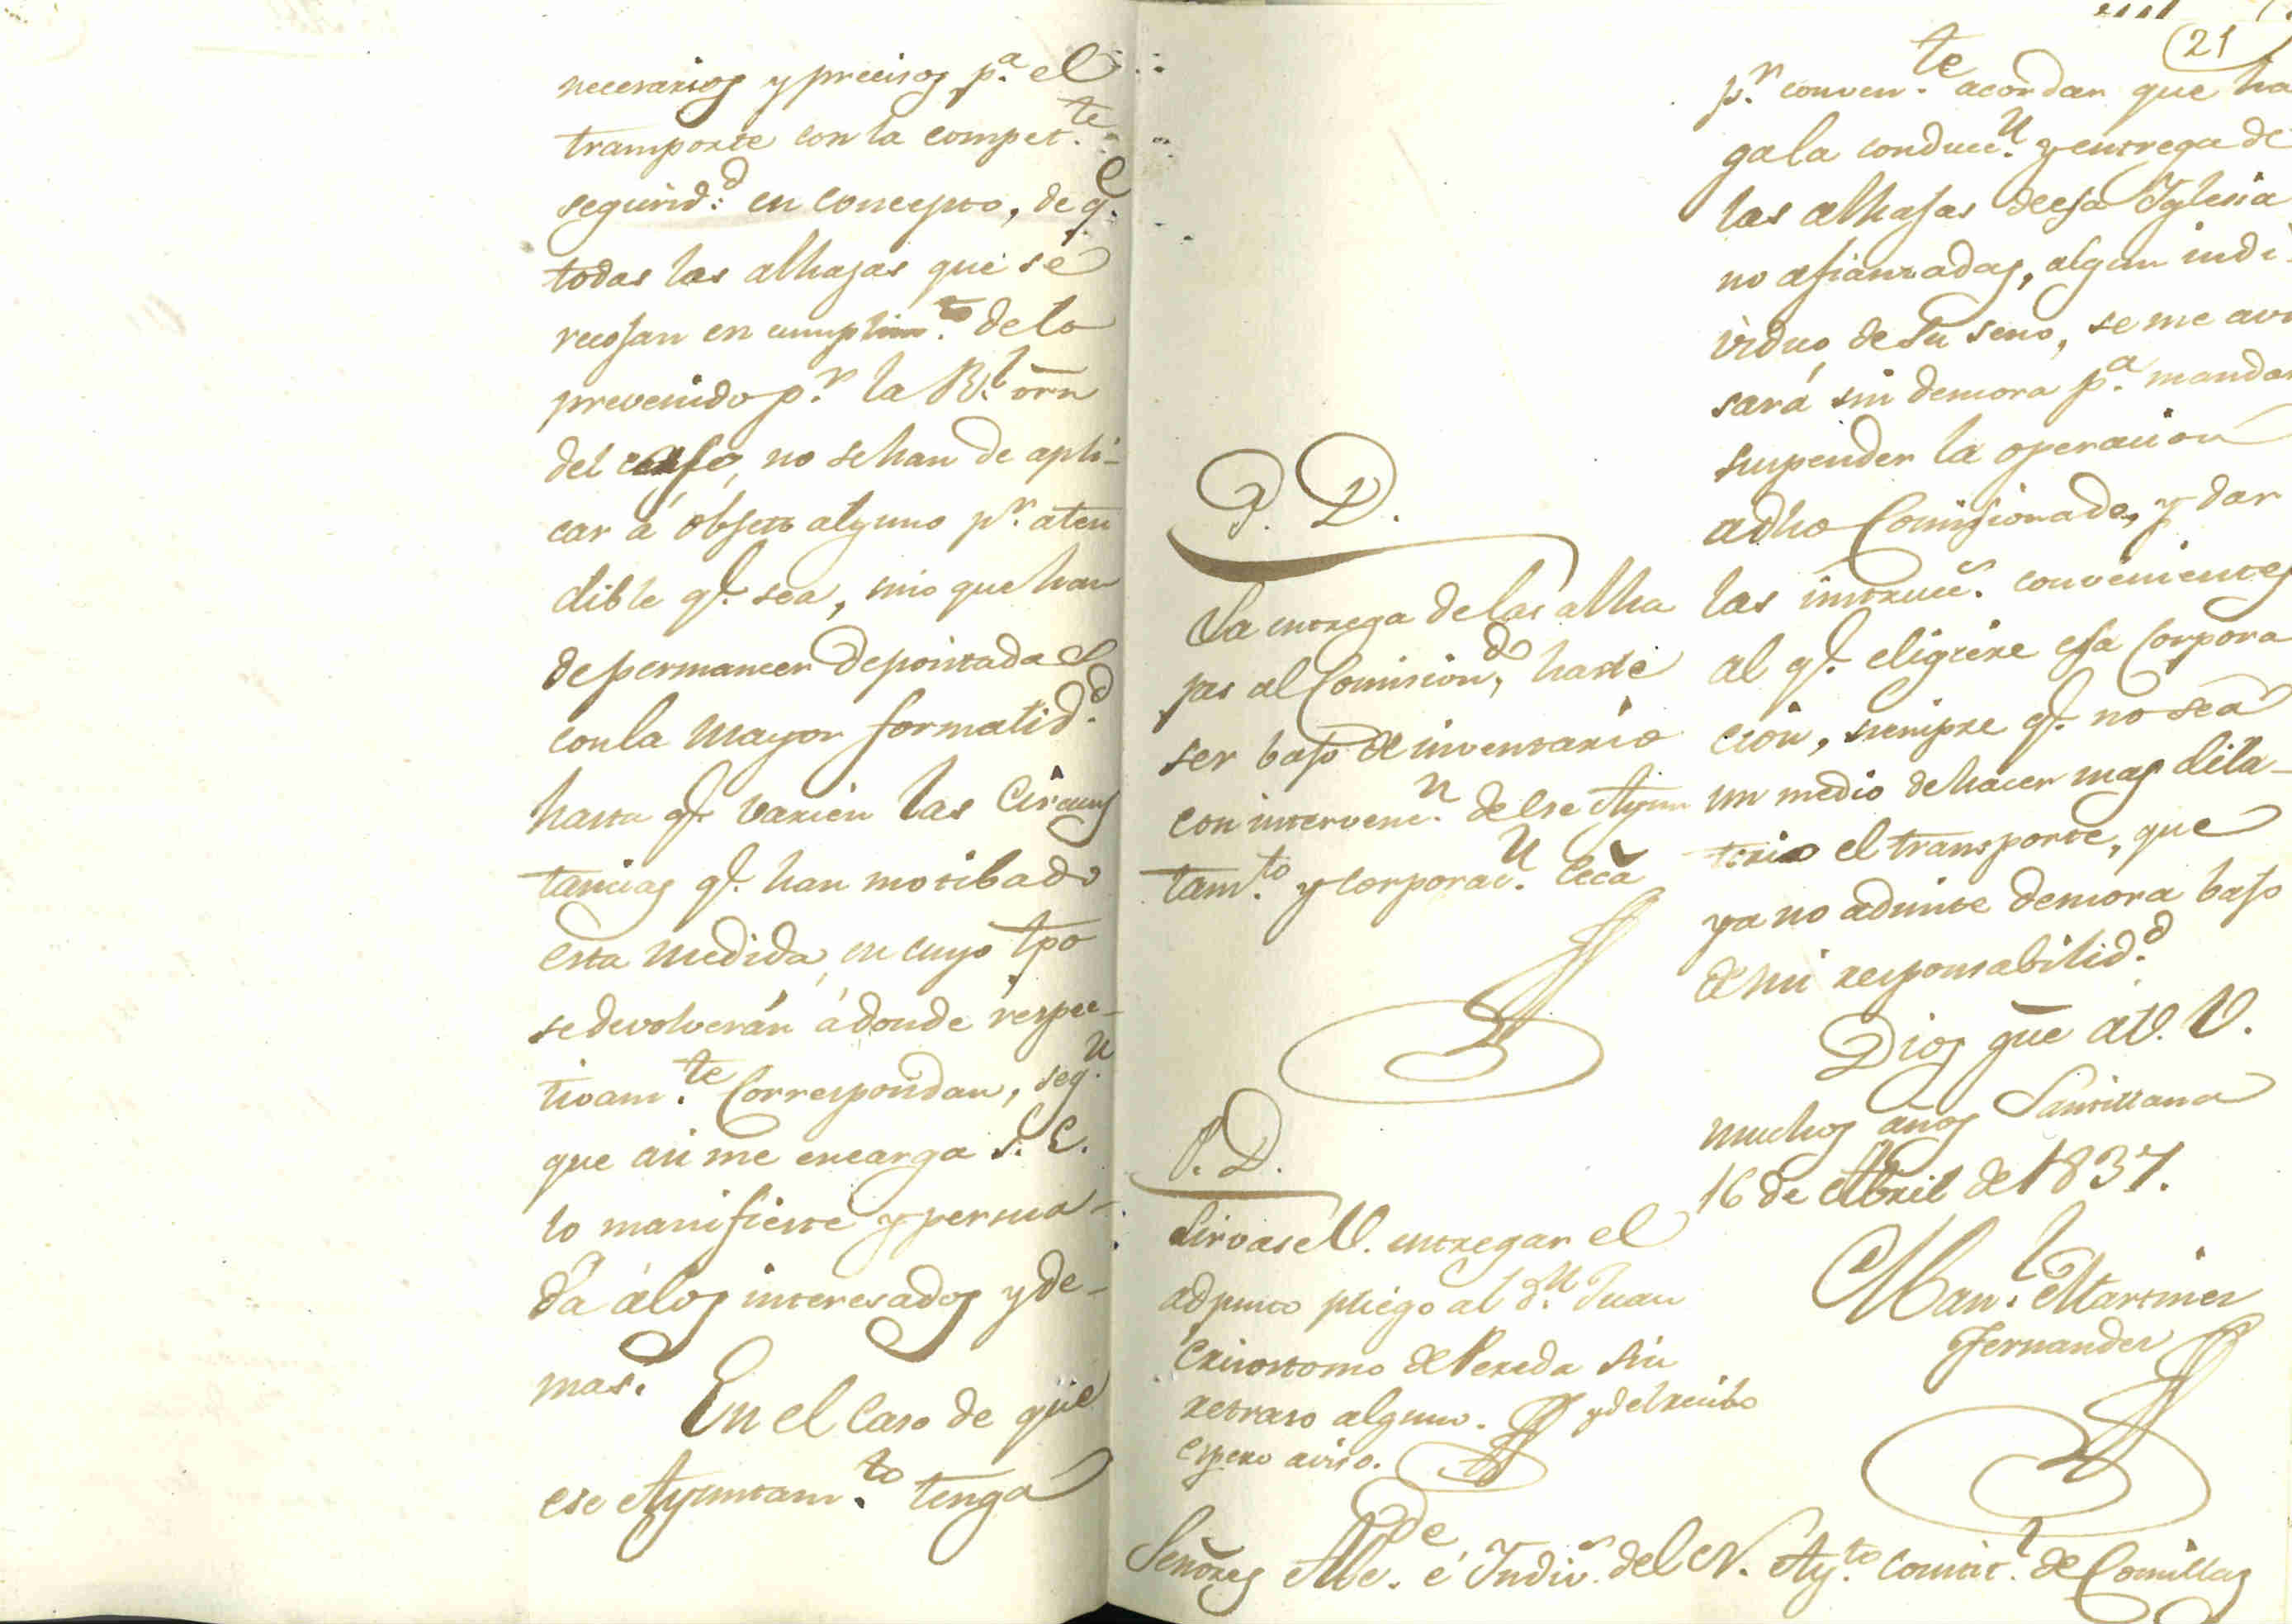 necesarios y precisos p.ª el
transporte con la compet.te
segurid.d en concepto, de q.e
todas las alhajas que se
recojan en cumplim.to de lo
prevenido p.r la R.l orn
del caso, no se han de apli-
car á objeto alguno p.r aten
dible q.e sea, sino que han
de permanecer depositadas
con la mayor formalid.d
hasta q.e varien las Circuns
tancias q.e han motibado
esta medida, en cuyo tpo
se devolverán á donde respec-
tivam.te Correspondan, seg.n
que asi me encarga S. E.
lo manifieste y persua-
da á los interesados y de-
mas.
En el caso de que
ese Ayuntam.to tenga
21
p.r conven.te acordar que ha
ga la conducc.n y entrega de
las alhajas de esa Iglesia
no afianzadas, algun indi-
viduo de su seno, se me avi
sará sin demora p.ª mandar
suspender la operacion
a dho Comisionado, y dar
las instrucc.s convenientes
al q.e eligiere esa Corpora
cion, siempre q.e no sea
un medio de hacer mas dila-
torio el transporte, que
ya no admite demora bajo
de mi responsabilid.d
Dios gue a V. V.
muchos años Santillana
16 de Abril de 1837.
Man.l Martinez
Fernandez
P. D.
La entrega de las alha
jas al Comision.do ha de
ser bajo de inventario
con intervenc.n de ese Ayun
tam.to y corporac.n Ecca
P. D.
Sirvase V. entregar el
adjunto pliego al d.n Juan
Crisostomo de Pereda sin
retraso alguno. y del recibo
espero aviso.
Señores Alc.de é Indiv.s del N. Ay.to Constit.l de Comillas